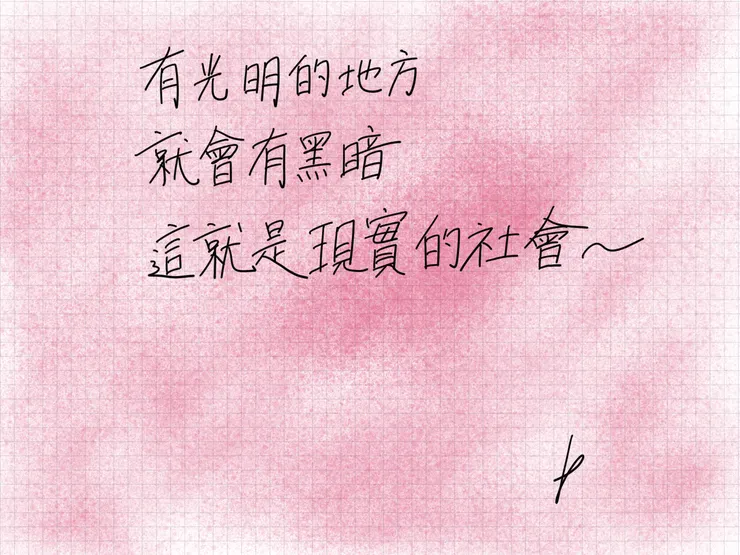 有光明的地方
就會有黑暗
這就是現實的社會～